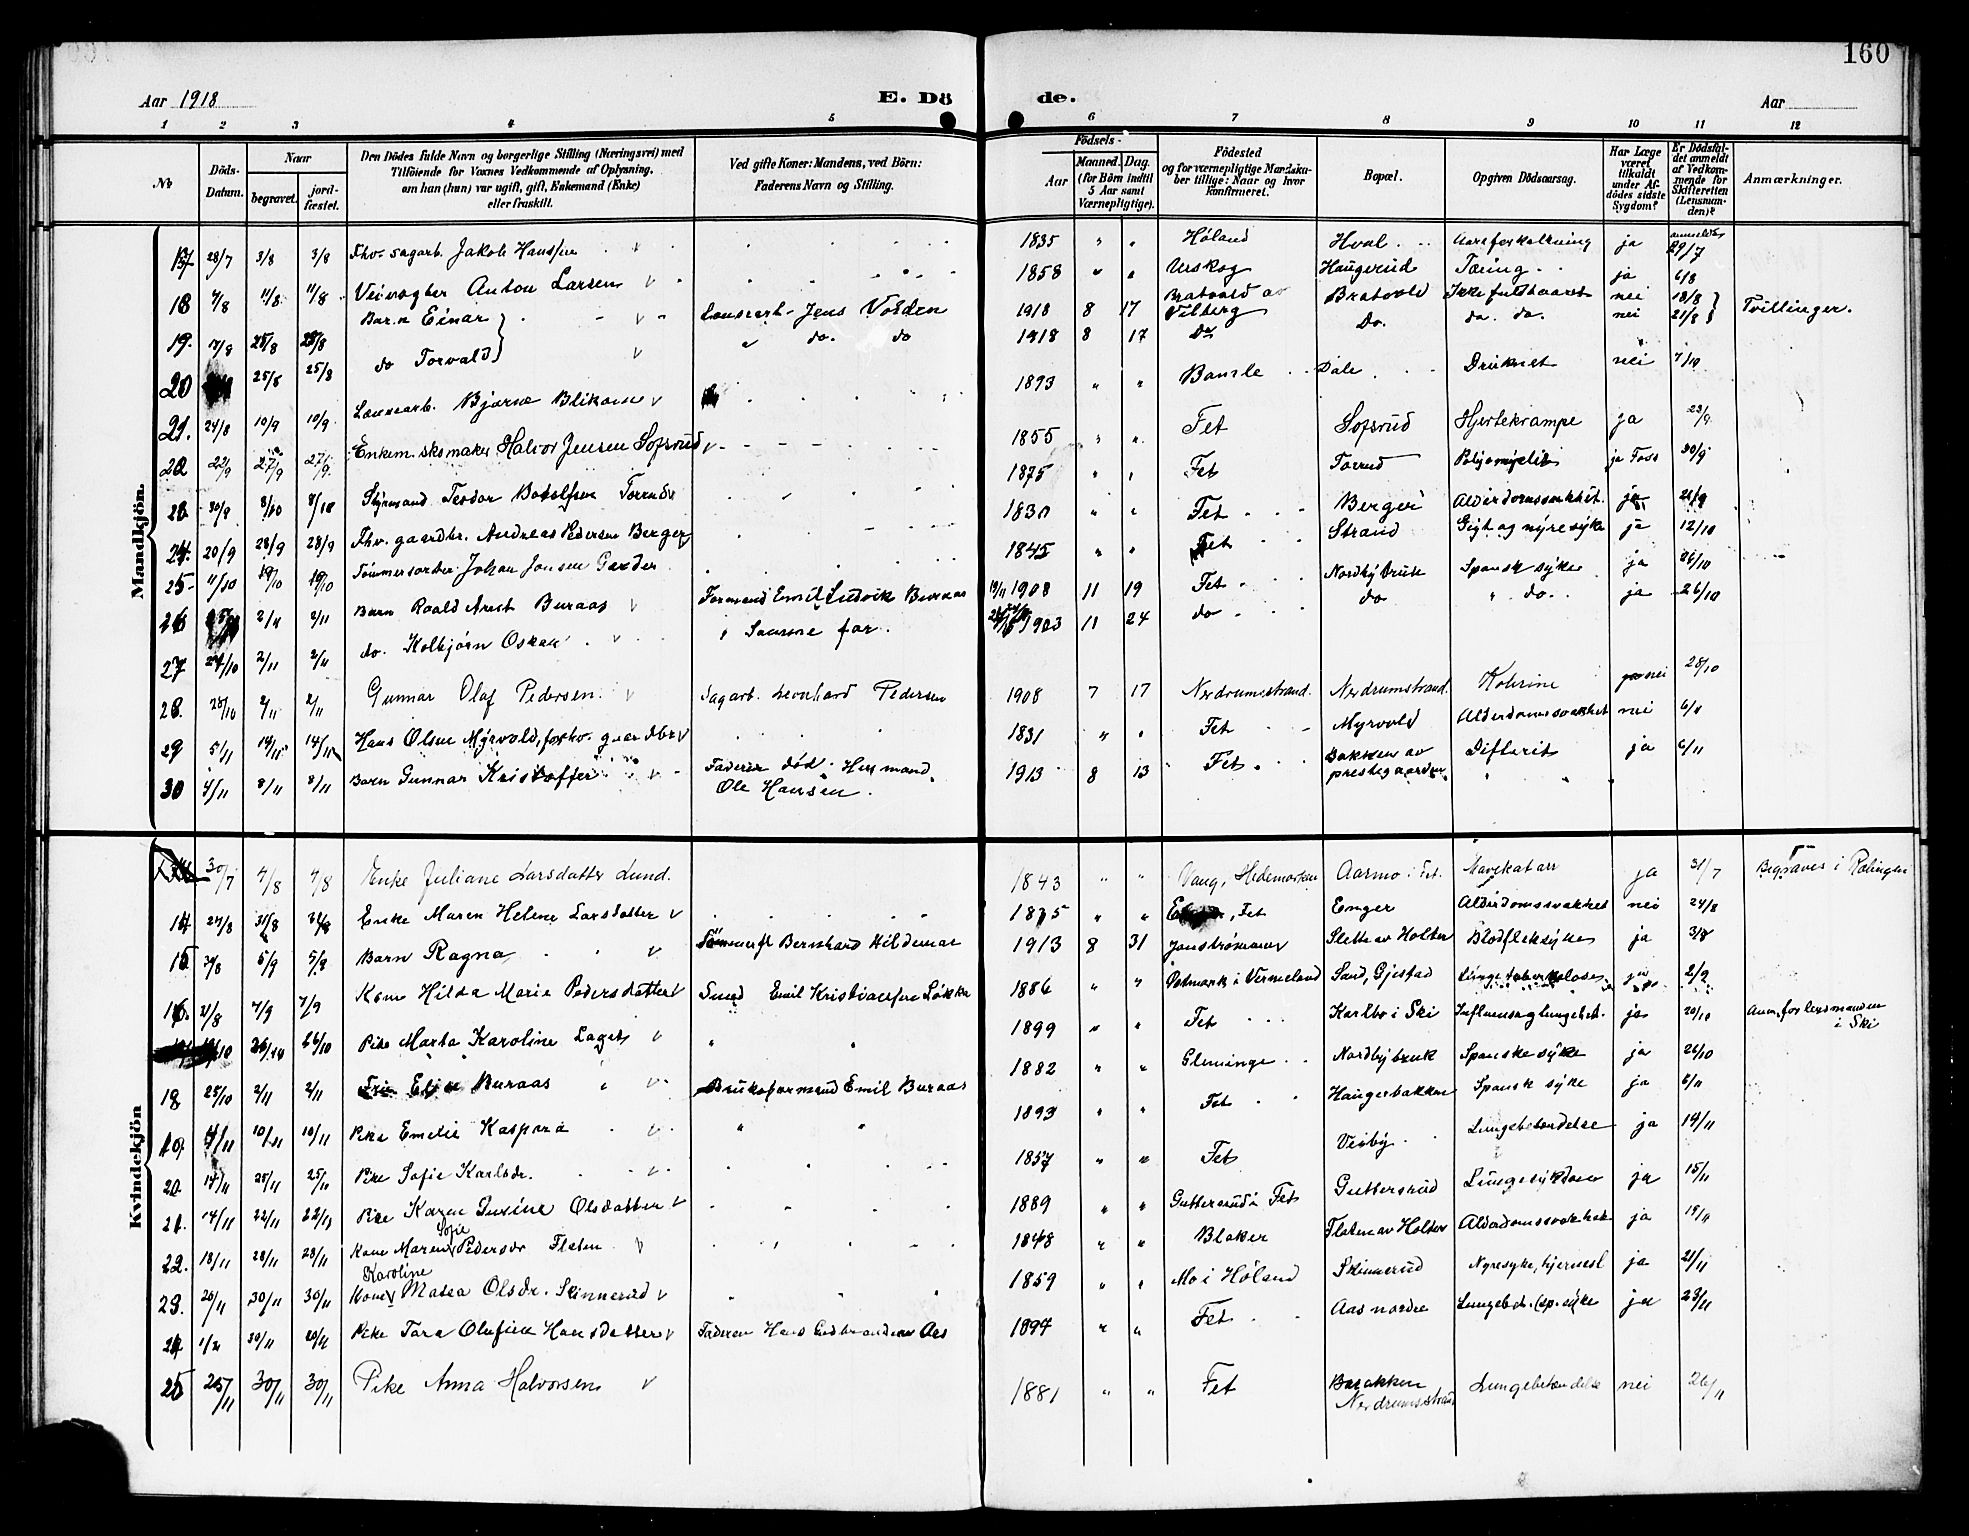 160
Aar 1918
E. Dö
de.
Aar
1 2 3 4 5 6 7 8 9 10 11 12
No
Döds-Datum.
Naar
begravet.
jord-fæstet.
Den Dödes fulde Navn og borgerlige Stilling (Næringsvei) med
Tilföiende for Voxnes Vedkommende af Oplysning,
om han (hun) var ugift, gift, Enkemand (Enke)
eller fraskilt.
Ved gifte Koner: Mandens, ved Börn:
Faderens Navn og Stilling.
Födsels-
Aar
Maaned. Dag.
(for Börn indtil
5 Aar samt
Værnepligtige).
Födested
og for værnepligtige Mandska-
ber tillige: Naar og hvor
konfirmeret.
Bopæl.
Opgiven Dödsaarsag.
Har Læge
været
tilkaldt
under Af-
dödes sidste
Sygdom?
Er Dödsfal-
det anmeldt
af Vedkom-
mende for
Skifteretten
(Lensman-
den)?
Anmærkninger.
Mandkjön.
17 28/7 3/8 3/8 Fhv. sagarb. Jakob Hanssen 1835 " " Høland Hval Aareforkalkning ja anmeldt 29/7
18 4/8 11/8 11/8 Veivogter Anton Larsen 1858 " " Urskog Haugerud Tæring ja 6/8
19. 17/8 25/8 25/8 Barn Einar Lausarb. Jens Volden 1918 8 17 Bratvold av Vilberg Bratvold Ikke fuldbaaret nei 18/8 Tvillinger.
20 25/8 25/8 do Torvald " do. do 1918 8 17 Do Do. do. do. nei 21/8
21. 24/8 10/9 10/9 Løsearb. Bjarne Blikom 1893 " " Bamle Dale Druknet nei 7/10
22 22/9 27/9 27/9 Enkem. skomaker Halvor Jensen Sofsrud 1855 " " Fet Sofsrud Hjertekrampe ja 23/9
23 30/9 8/10 8/10 Styrmand Teodor Botolfsen Torrud 1875 " " Fet Torrud Poliomyelit ja Foss 30/9
24. 20/9 28/9 28/9 Fhv. gaardbr. Andreas Pedersen Berger 1830 " " Fet Berger Alderdomssvakhet. ja 21/9
25 11/10 19/10 19/10 Tømmersorter Johan Jansen Garder 1845 " " Fet Strand Gigt og nyresyke ja 12/10
26 2/11 2/11 Barn Roald Arent Buraas Formand Emil Ludvik Buraas 1908 11 19 Fet Nordby bruk Spansk syke ja 26/10
27 27/10 2/11 2/11 do. Kolbjørn Oskar " Samme far. 1903 11 24 do do " do. ja 26/10
28. 28/10 2/11 2/11 Gunnar Olaf Pedersen Sagarb. Leonhard Pedersen 1908 7 17 Nerdrumstrand. Nerdrumstrand. Kolerine nei 28/10
29 5/11 14/11 14/11 Hans Olsen Myrvold, forhv. gaardbr 1831 " " Fet Myrvold Alderdomssvakhet nei 6/11
30 4/11 8/11 8/11 Barn Gunnar Kristoffer Faderen død. Husmand Ole Hansen. 1913 8 13 Fet. Bakken av prestegaarden Difterit ja 6/11
Kvindekjön
30/7 4/8 4/8 Enke Juliane Larsdatter Lund. 1843 " " Vang, Hedemarken Aarmo i Fet. Mavekatarr ja 31/7 Begraves i Rælingen
14 31/8 31/8 Enke Maren Helene Larsdatter Fet Enger Alderdomssvakhet nei 24/8
15 5/9 5/9 Barn Ragna Tømmerfl Bernhard Hildemar 1913 8 31 Slette av Holter Blodfleksyke ja 31/8
16. 31/8 7/9 7/9 Kone Hilda Marie Pedersdatter Smed Emil Kristiansen Løkke 1886 " " Østmark i Vermeland Sand, Gjestad Lungetuberkulose ja 2/9
26/10 26/10 Pike Marta Karoline Lager 1899 " " Fet Karlbo i Ski Influensa, lungebet. ja 20/10 Anm. for lensmanden i Ski
18 25/10 2/11 2/11 Fru Buraas Bruksformand Emil Buraas 1882 " " Glemminge Nordbybruk Spanske syke ja 26/10
10/11 10/11 Pike Emelie Kaspara 1893 " " Fet Haugerbakken Spansk syke ja
20. 14/11 25/11 25/11 Pike Sofie Karlsdr. 1857 " " Fet Veiby Lungebetendelse ja 14/11
21. 14/11 22/11 22/11 Pike Karen Gusine Olsdatter 1889 " " Guttersrud i Fet Guttersrud Lungesykdom ja 15/11
22. 18/11 28/11 28/11 Kone Maren Sofie Pedersdr Flaten 1848 " " Blaker Flaten av Holter Alderdomssvakhet ja 19/11
23. 20/11 30/11 30/11 Kone Karoline Matea Olsdr. Skinnerud 1859 " " Mo i Høland Skinnerud Nyresyke, hjernesl ja 21/11
24 30/11 Pike Tara Olufine Hansdatter Faderen Hans Gudbrandsen Aas 1897 " " Fet Aas nordre Lungebet. (sp. syke ja 23/11
25 25/11 30/11 30/11 Pike Anna Halvorsen 1881 " " Fet Barakken Nerdrumsstrand Lungebetændelse nei 26/11